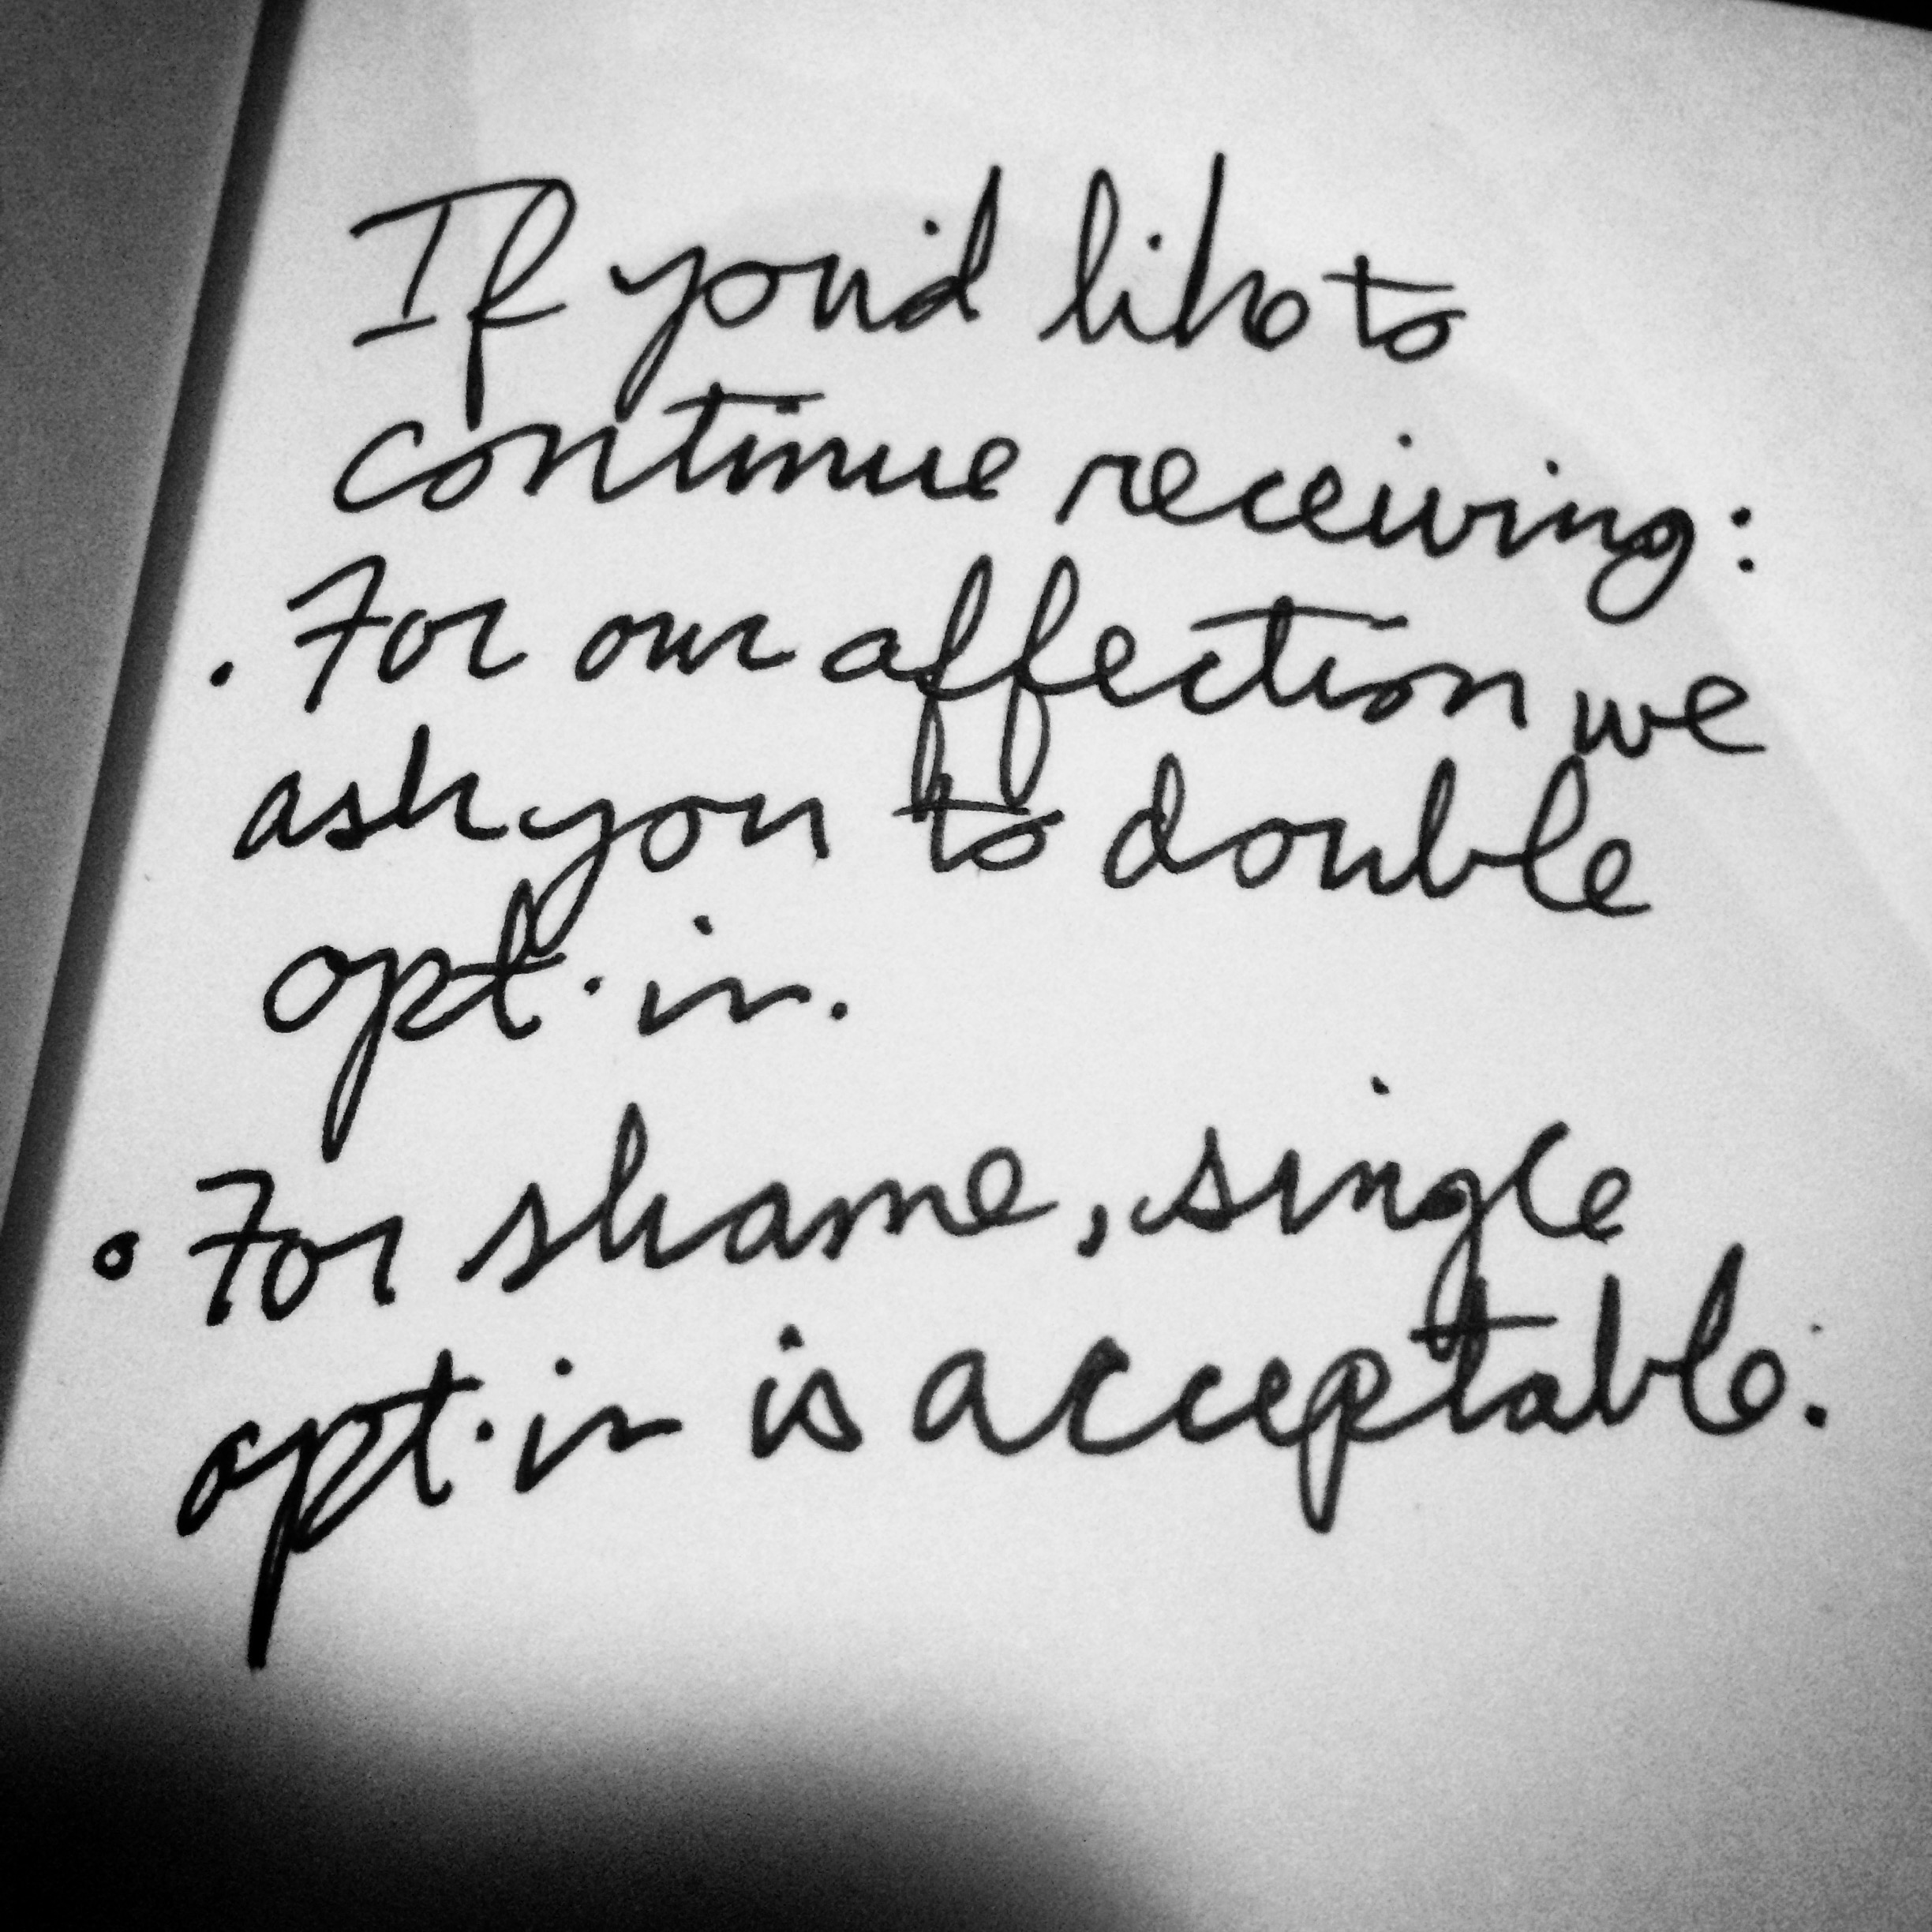 If you'd like to
continue receiving:
• For our affection we
ask you to double
opt-in.
• For shame, single
opt-in is acceptable.